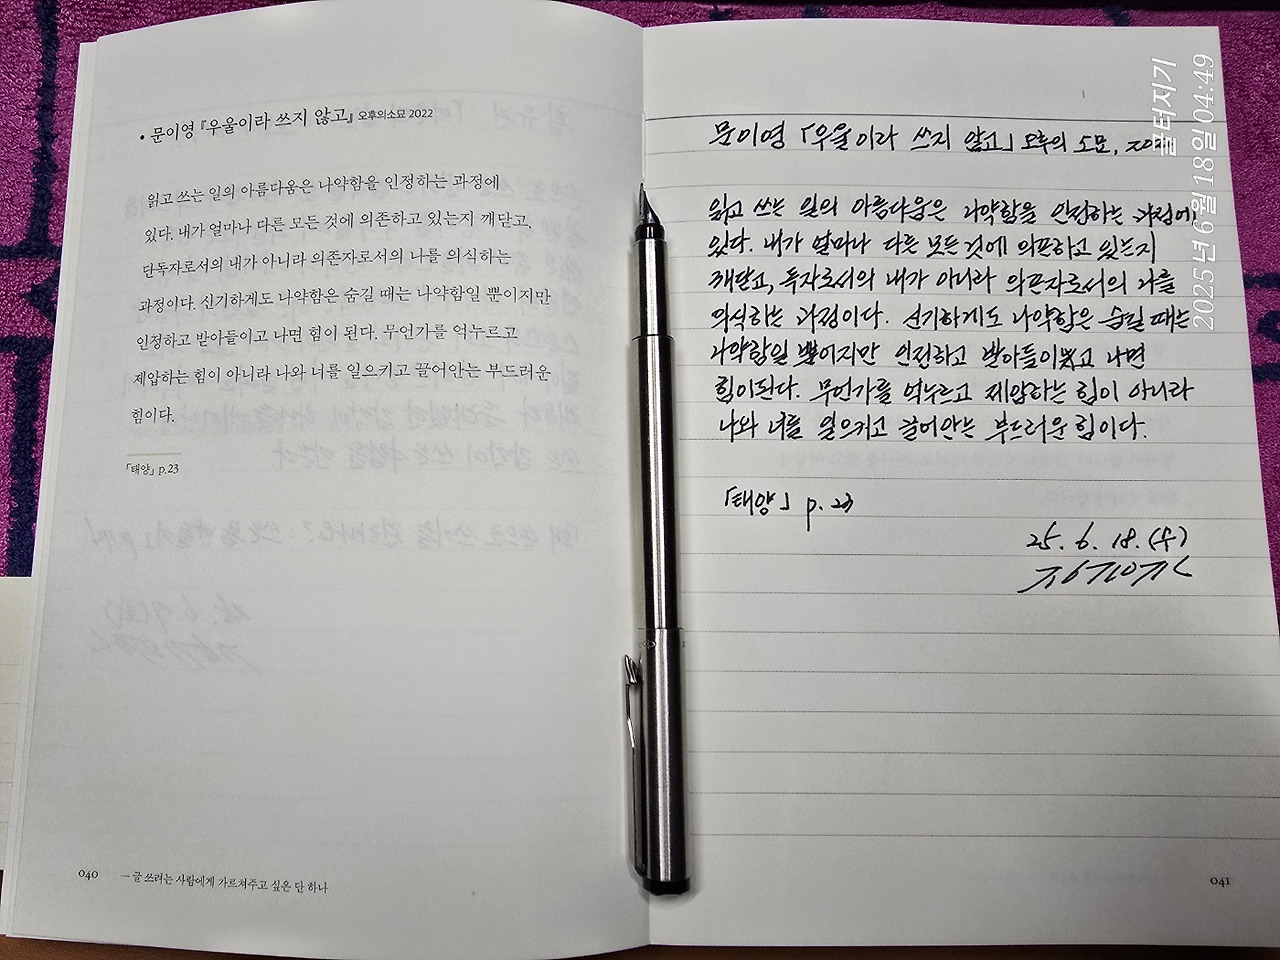 • 문이영 『우울이라 쓰지 않고』 오후의소묘 2022
읽고 쓰는 일의 아름다움은 나약함을 인정하는 과정에
있다. 내가 얼마나 다른 모든 것에 의존하고 있는지 깨닫고,
단독자로서의 내가 아니라 의존자로서의 나를 의식하는
과정이다. 신기하게도 나약함은 숨길 때는 나약함일 뿐이지만
인정하고 받아들이고 나면 힘이 된다. 무언가를 억누르고
제압하는 힘이 아니라 나와 너를 일으키고 끌어안는 부드러운
힘이다.
「태양」 p.23
040 — 글 쓰려는 사람에게 가르쳐주고 싶은 단 하나
문이영 「우울이라 쓰지 않고」 오후의 소묘,
읽고 쓰는 일의 아름다움은 나약함을 인정하는 과정에
있다. 내가 얼마나 다른 모든 것에 의존하고 있는지
깨닫고, 독자로서의 내가 아니라 의존자로서의 나를
의식하는 과정이다. 신기하게도 나약함은 숨길 때는
나약함일 뿐이지만 인정하고 받아들이고 나면
힘이된다. 무언가를 억누르고 제압하는 힘이 아니라
나와 너를 일으키고 끌어안는 부드러운 힘이다.
「태양」 p.23
25. 6. 18. (수)
041
글터지기
2025년 6월 18일 04:49